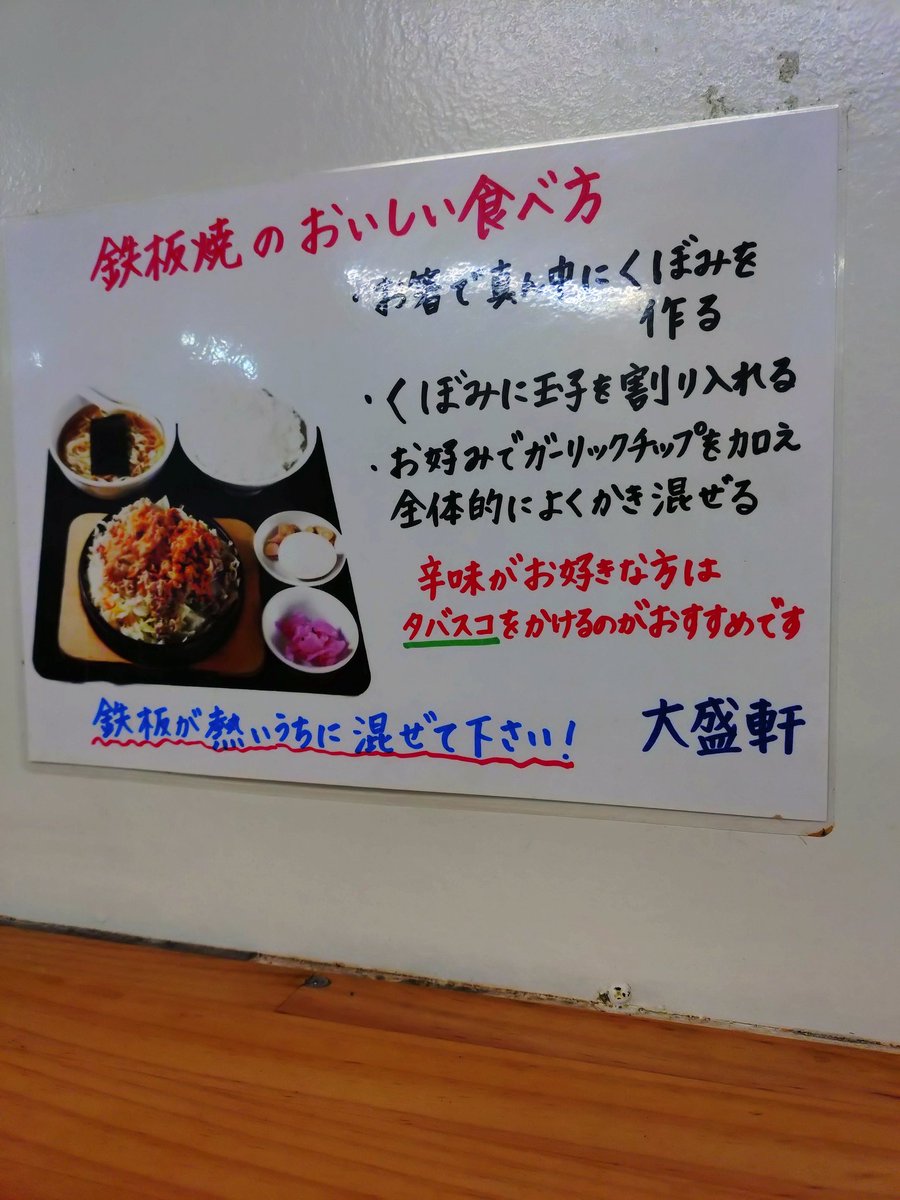 鉄板焼のおいしい食べ方
・お箸で真ん中にくぼみを
作る
・くぼみに玉子を割り入れる
・お好みでガーリックチップを加え
全体的によくかき混ぜる
辛味がお好きな方は
タバスコをかけるのがおすすめです
鉄板が熱いうちに混ぜて下さい!
大盛軒